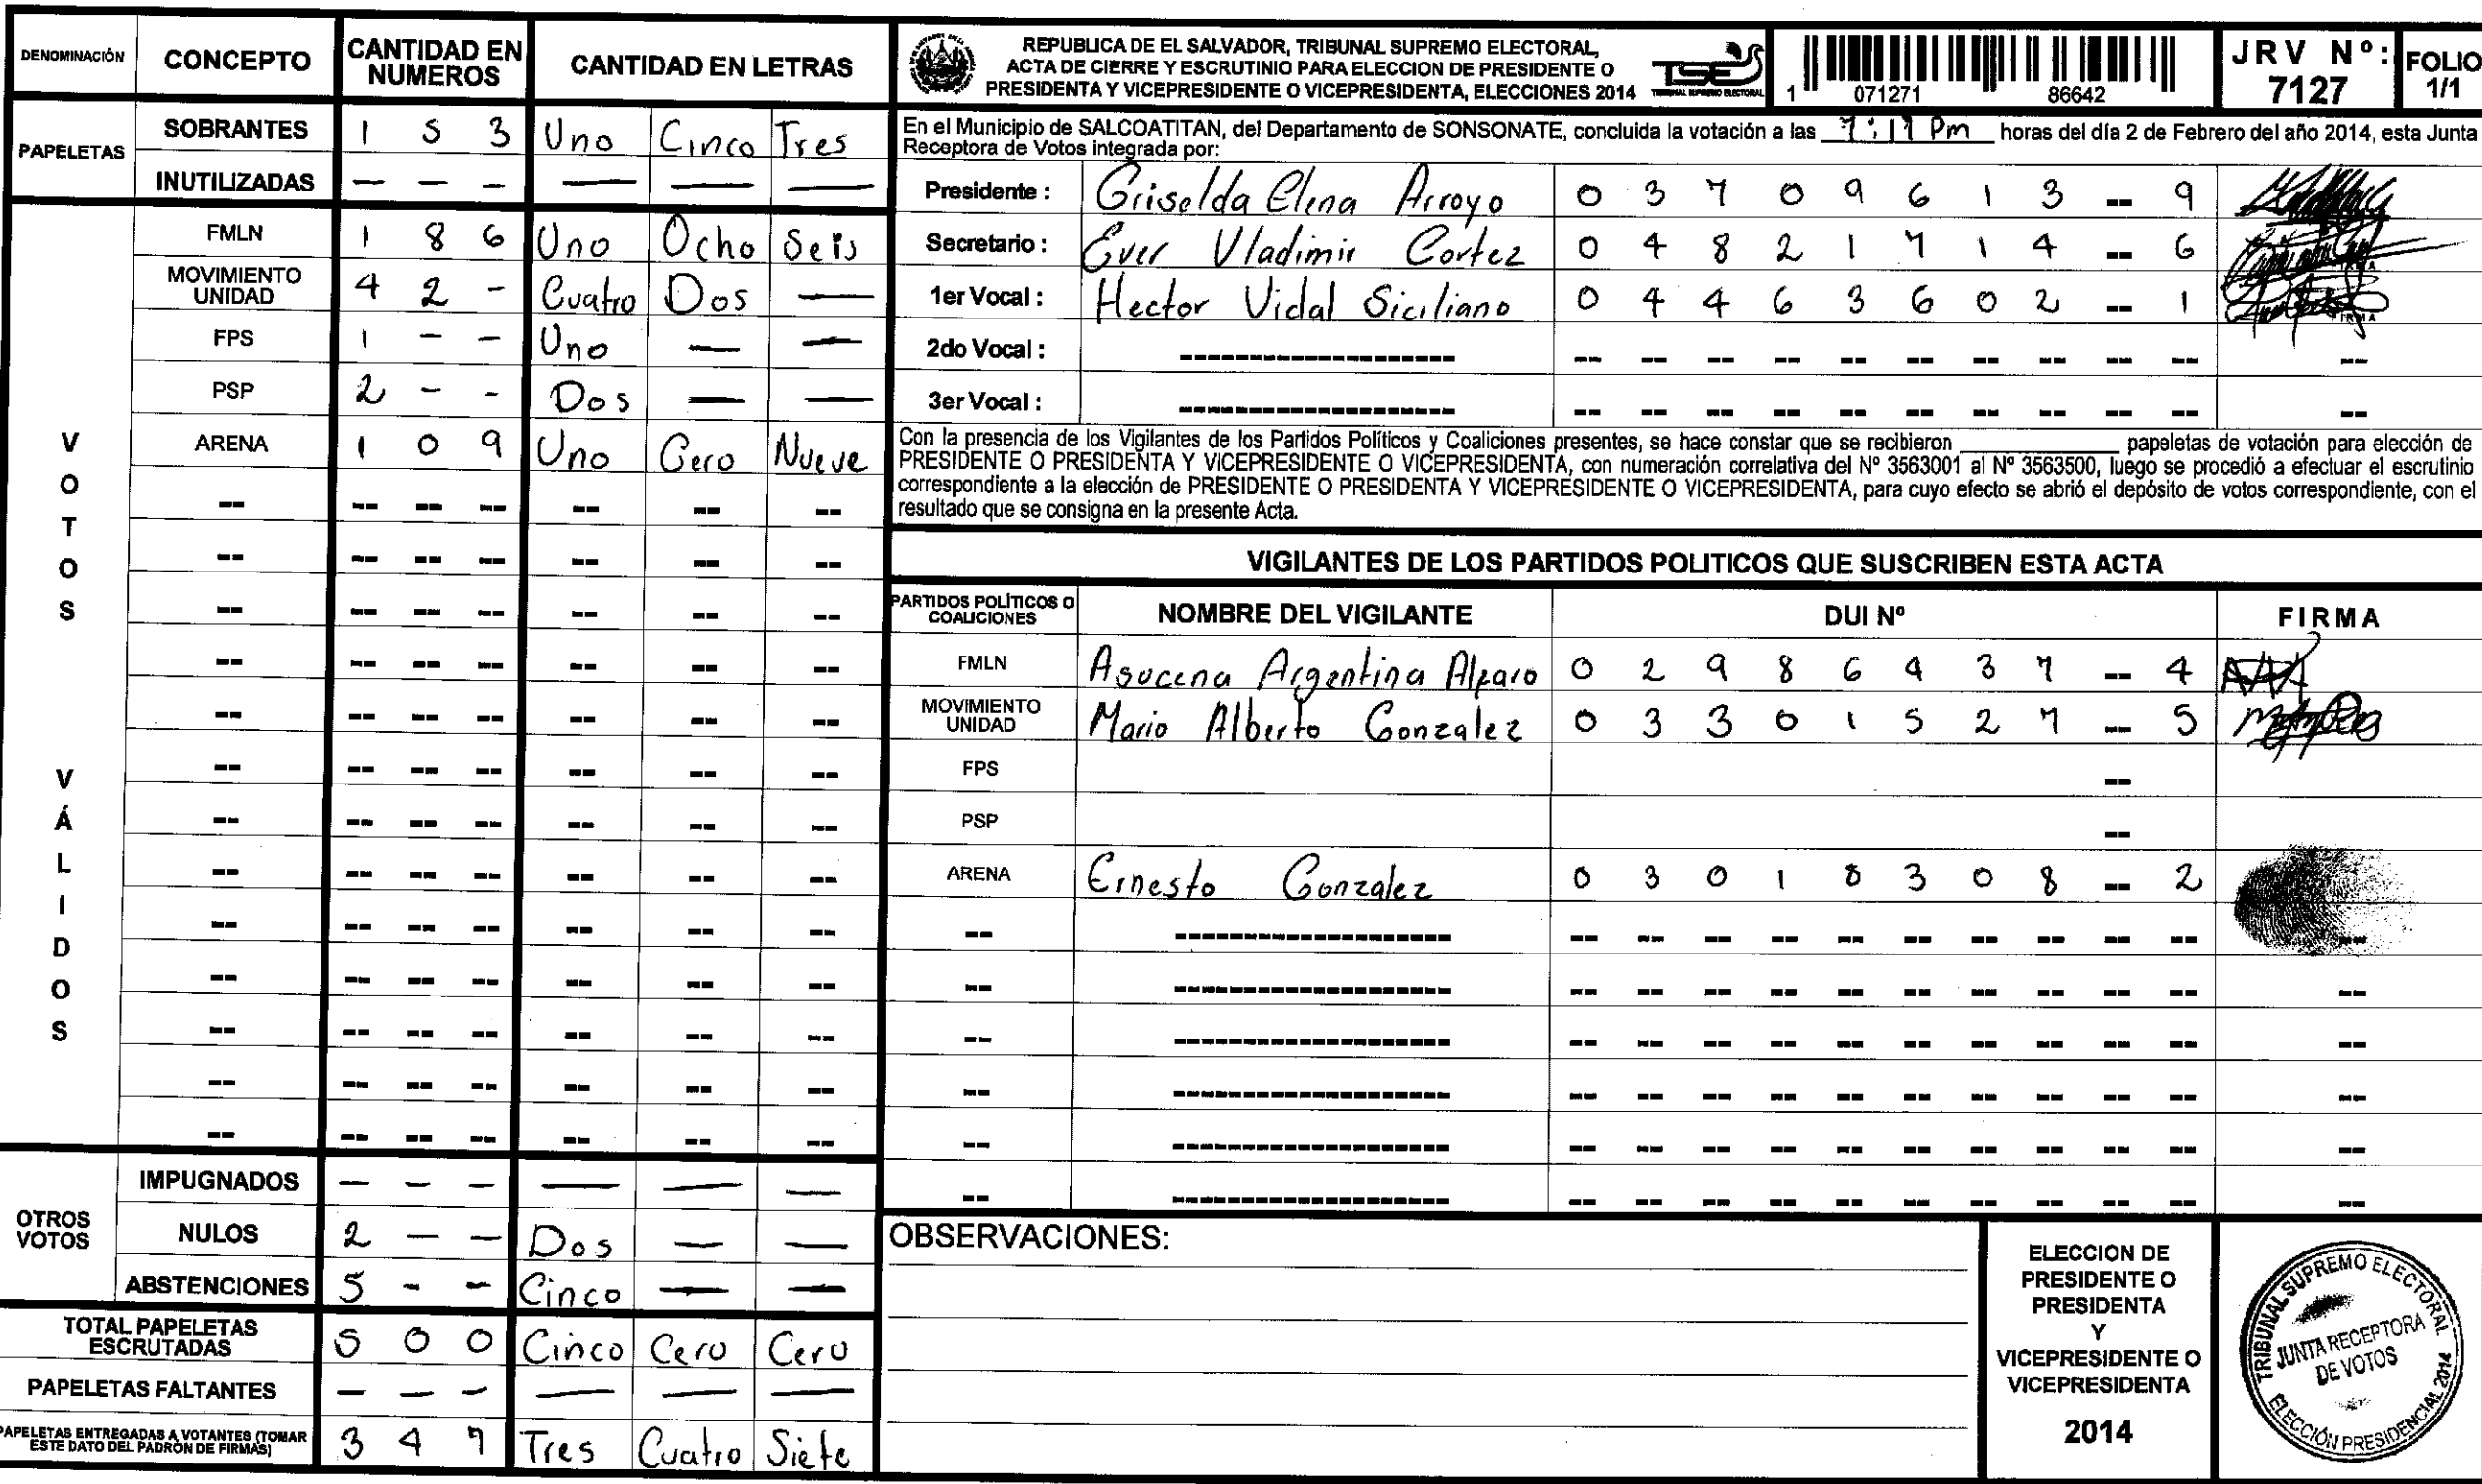 DENOMINACIÓN CONCEPTO CANTIDAD EN NUMEROS CANTIDAD EN LETRAS
PAPELETAS
SOBRANTES 1 5 3 Uno Cinco Tres
INUTILIZADAS — — — — — —
VOTOS VÁLIDOS
FMLN 1 8 6 Uno Ocho Seis
MOVIMIENTO UNIDAD 4 2 - Cuatro Dos —
FPS 1 - - Uno — —
PSP 2 - - Dos — —
ARENA 1 0 9 Uno Cero Nueve
OTROS VOTOS
IMPUGNADOS — — — — — —
NULOS 2 — — Dos — —
ABSTENCIONES 5 - - Cinco — —
TOTAL PAPELETAS ESCRUTADAS 5 0 0 Cinco Cero Cero
PAPELETAS FALTANTES — — — — — —
PAPELETAS ENTREGADAS A VOTANTES (TOMAR ESTE DATO DEL PADRÓN DE FIRMAS) 3 4 7 Tres Cuatro Siete
REPUBLICA DE EL SALVADOR, TRIBUNAL SUPREMO ELECTORAL,
ACTA DE CIERRE Y ESCRUTINIO PARA ELECCION DE PRESIDENTE O
PRESIDENTA Y VICEPRESIDENTE O VICEPRESIDENTA, ELECCIONES 2014
TSE
TRIBUNAL SUPREMO ELECTORAL
1 071271 86642
JRV Nº: 7127
FOLIO 1/1
En el Municipio de SALCOATITAN, del Departamento de SONSONATE, concluida la votación a las 7:17 Pm horas del día 2 de Febrero del año 2014, esta Junta
Receptora de Votos integrada por:
Presidente : Griselda Elena Arroyo 0 3 7 0 9 6 1 3 -- 9
Secretario : Ever Vladimir Cortez 0 4 8 2 1 7 1 4 -- 6
1er Vocal : Hector Vidal Siciliano 0 4 4 6 3 6 0 2 -- 1
2do Vocal :
3er Vocal :
Con la presencia de los Vigilantes de los Partidos Políticos y Coaliciones presentes, se hace constar que se recibieron ________ papeletas de votación para elección de
PRESIDENTE O PRESIDENTA Y VICEPRESIDENTE O VICEPRESIDENTA, con numeración correlativa del Nº 3563001 al Nº 3563500, luego se procedió a efectuar el escrutinio
correspondiente a la elección de PRESIDENTE O PRESIDENTA Y VICEPRESIDENTE O VICEPRESIDENTA, para cuyo efecto se abrió el depósito de votos correspondiente, con el
resultado que se consigna en la presente Acta.
VIGILANTES DE LOS PARTIDOS POLITICOS QUE SUSCRIBEN ESTA ACTA
PARTIDOS POLÍTICOS O COALICIONES NOMBRE DEL VIGILANTE DUI Nº FIRMA
FMLN Asucena Argentina Alfaro 0 2 9 8 6 4 3 7 -- 4
MOVIMIENTO UNIDAD Mario Alberto Gonzalez 0 3 3 0 1 5 2 7 -- 5
FPS --
PSP --
ARENA Ernesto Gonzalez 0 3 0 1 8 3 0 8 -- 2
OBSERVACIONES:
ELECCION DE
PRESIDENTE O
PRESIDENTA
Y
VICEPRESIDENTE O
VICEPRESIDENTA
2014
TRIBUNAL SUPREMO ELECTORAL
JUNTA RECEPTORA
DE VOTOS
ELECCIÓN PRESIDENCIAL 2014